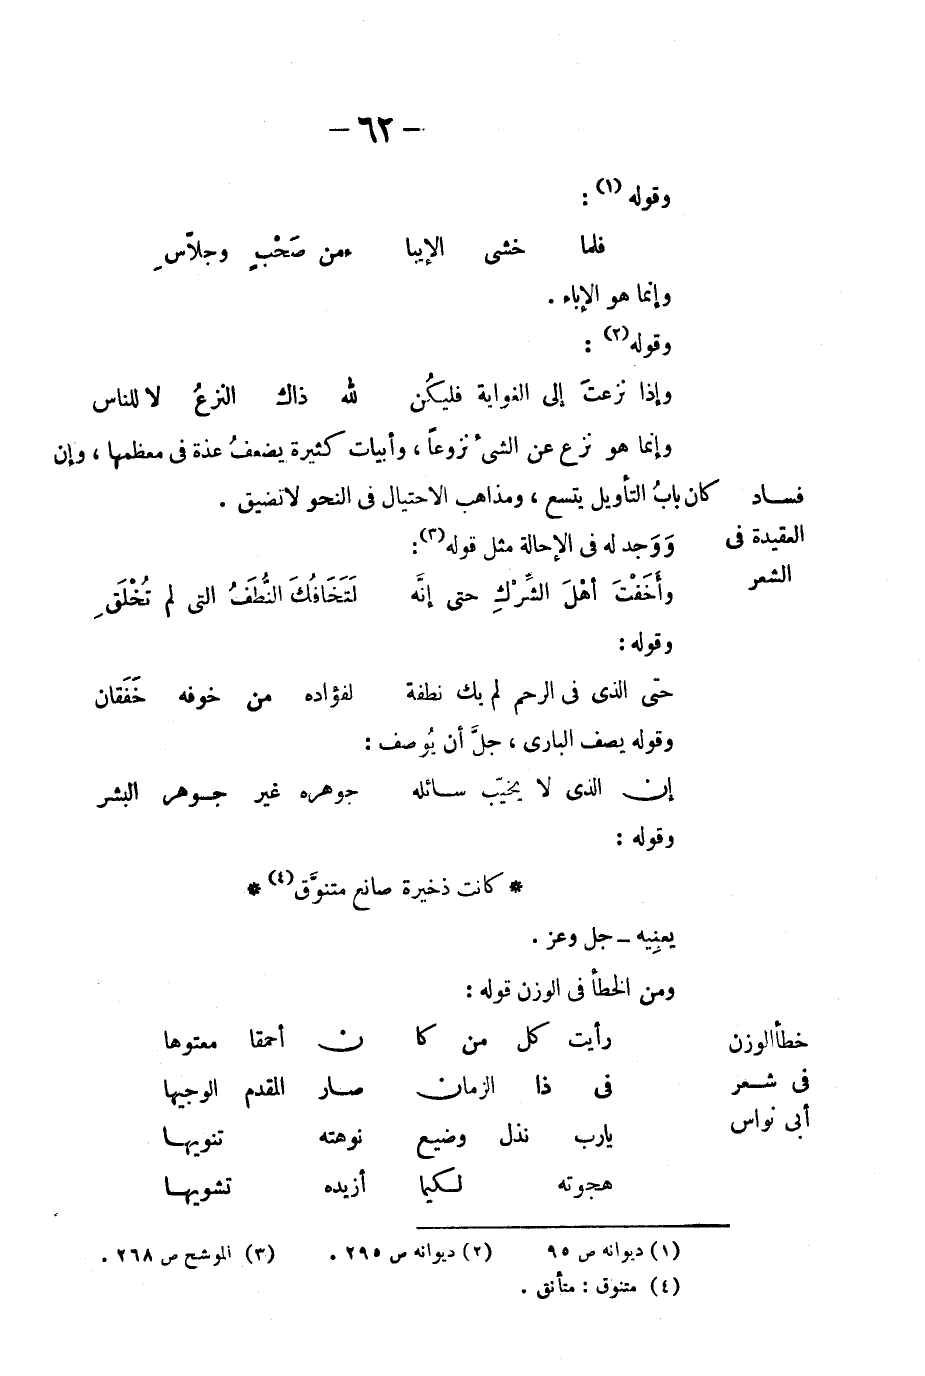 — ٦٢ —
وقوله (١) :
فلما خشى الإيبا ءمن صَحْبٍ وجلاّسِ
وإنما هو الإباء .
وقوله (٢) :
وإذا نزعتَ إلى الغواية فليكُن لله ذاك النزعُ لا للناس
وإنما هو نزع عن الشىء نزوعاً ، وأبيات كثيرة يضعفُ عذة فى معظمها ، وإن
كان بابُ التأويل يتسع ، ومذاهب الاحتيال فى النحو لاتضيق .
فساد
العقيدة فى
الشعر
وَوَجد له فى الإحالة مثل قوله (٣) :
وأَخَفْتَ أهْلَ الشِّرْكِ حتى إنَّه لَتَخَافُكَ النُّطَفُ التى لم تُخْلَقِ
وقوله :
حتّى الذى فى الرحم لم يك نطفة لفؤاده من خوفه خَفَقان
وقوله يصف البارى ، جلَّ أن يُوصف :
إن الذى لا يخيّب سائله جوهره غير جوهر البشر
وقوله :
* كانت ذخيرة صانع متنوَّق (٤) *
يعنِيه – جل وعز .
ومن الخطأ فى الوزن قوله :
خطأ الوزن
فى شعر
أبى نواس
رأيت كل من كا ن أحمقا معتوها
فى ذا الزمان صار المقدم الوجيها
يارب نذل وضيع نوهته تنويها
هجوته لكيما أزيده تشويها
(١) ديوانه ص ٩٥ (٢) ديوانه ص ٢٩٥ . (٣) الموشح ص ٢٦٨ .
(٤) متنوق : متأنق .